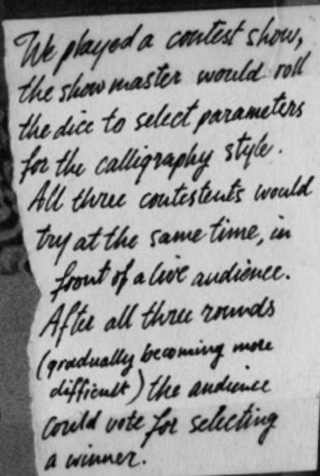 We played a contest show,
the showmaster would roll
the dice to select parameters
for the calligraphy style.
All three contestents would
try at the same time, in
front of a live audience.
After all three rounds
(gradually becoming more
difficult) the audience
could vote for selecting
a winner.